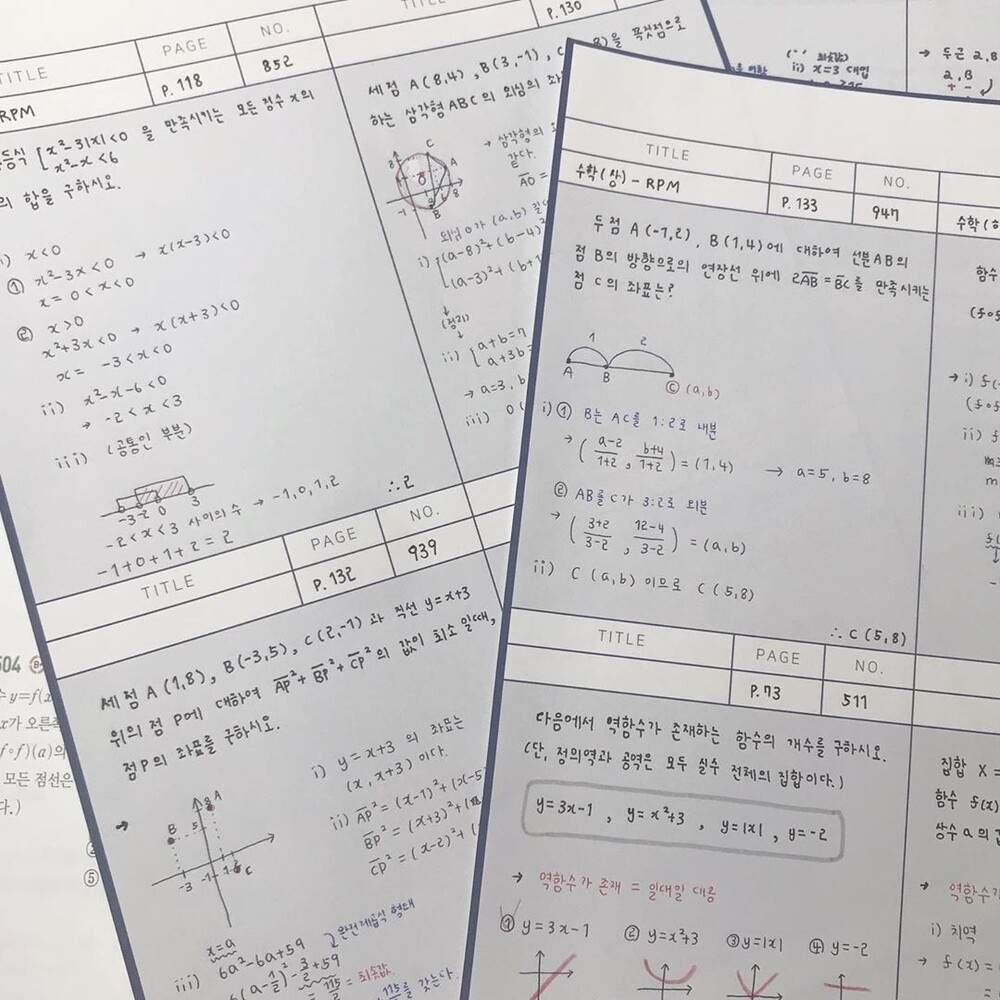 TITLE
PAGE
NO.
RPM
P.118
852
등식 [x²-3|x|<0 을 만족시키는 모든 정수 x의
x²-x<6
의 합을 구하시오.
i) x<0
① x²-3x<0 → x(x-3)<0
x = 0<x<0
② x>0
x²+3x<0 → x(x+3)<0
x = -3<x<0
ii) x²-x-6<0
→ -2<x<3
iii) (공통인 부분)
-3 -2 0 3
-2<x<3 사이의 수 → -1,0,1,2
-1+0+1+2=2
∴2
TITLE
P.130
세 점 A(8,4), B(3,-1), C
을 꼭짓점으로
하는 삼각형 ABC의 외심의 좌
→ 삼각형의
같다.
AO =
외심 O가 (a,b)
i) (a-8)²+(b-4)²
(a-3)²+(b+1
(정리)
ii) a+b=7
a+3b
→ a=3, b
iii) O(
TITLE
PAGE
NO.
P.132
939
세 점 A(1,8), B(-3,5), C(2,-1)과 직선 y=x+3
위의 점 P에 대하여 AP²+BP²+CP²의 값이 최소일때,
점P의 좌표를 구하시오.
A
B
5
-3
-1
C
x=a
i) y=x+3 의 좌표는
(x, x+3) 이다.
ii) AP² = (x-1)²+(x-5
BP² = (x+3)²+(
CP² = (x-2)²+(
iii) 6a²-6a+59
완전제곱식 형태
6(a-1/2)²-3/2+59
= 115/2 = 최솟값
115/2를 갖는다.
504
y=f(x
x가 오른쪽
f∘f)(a)의
모든 점선은
다.)
⑤
ii) x=3 대입
→ 두근 2,B
2,B
+ -
TITLE
PAGE
NO.
수학(상)-RPM
P.133
947
두 점 A(-1,2), B(1,4)에 대하여 선분AB의
점 B의 방향으로의 연장선 위에 2AB=BC를 만족시키는
점 C의 좌표는?
1 2
A B C (a,b)
i) ① B는 AC를 1:2로 내분
→ (a-2/1+2, b+4/1+2) = (1,4) → a=5, b=8
② AB를 C가 3:2로 외분
→ (3+2/3-2, 12-4/3-2) = (a,b)
ii) C(a,b) 이므로 C(5,8)
∴ C(5,8)
수학(하
함수
(f∘
→ i) f(
(f∘f
ii) f
m
iii)
TITLE
PAGE
NO.
P.73
511
다음에서 역함수가 존재하는 함수의 개수를 구하시오.
(단, 정의역과 공역은 모두 실수 전체의 집합이다.)
y=3x-1, y=x²+3, y=|x|, y=-2
→ 역함수가 존재 = 일대일 대응
① y=3x-1 ② y=x²+3 ③ y=|x| ④ y=-2
집합 X =
함수 f(x)
상수 a의 값
→ 역함수가
i) 치역
→ f(x) =